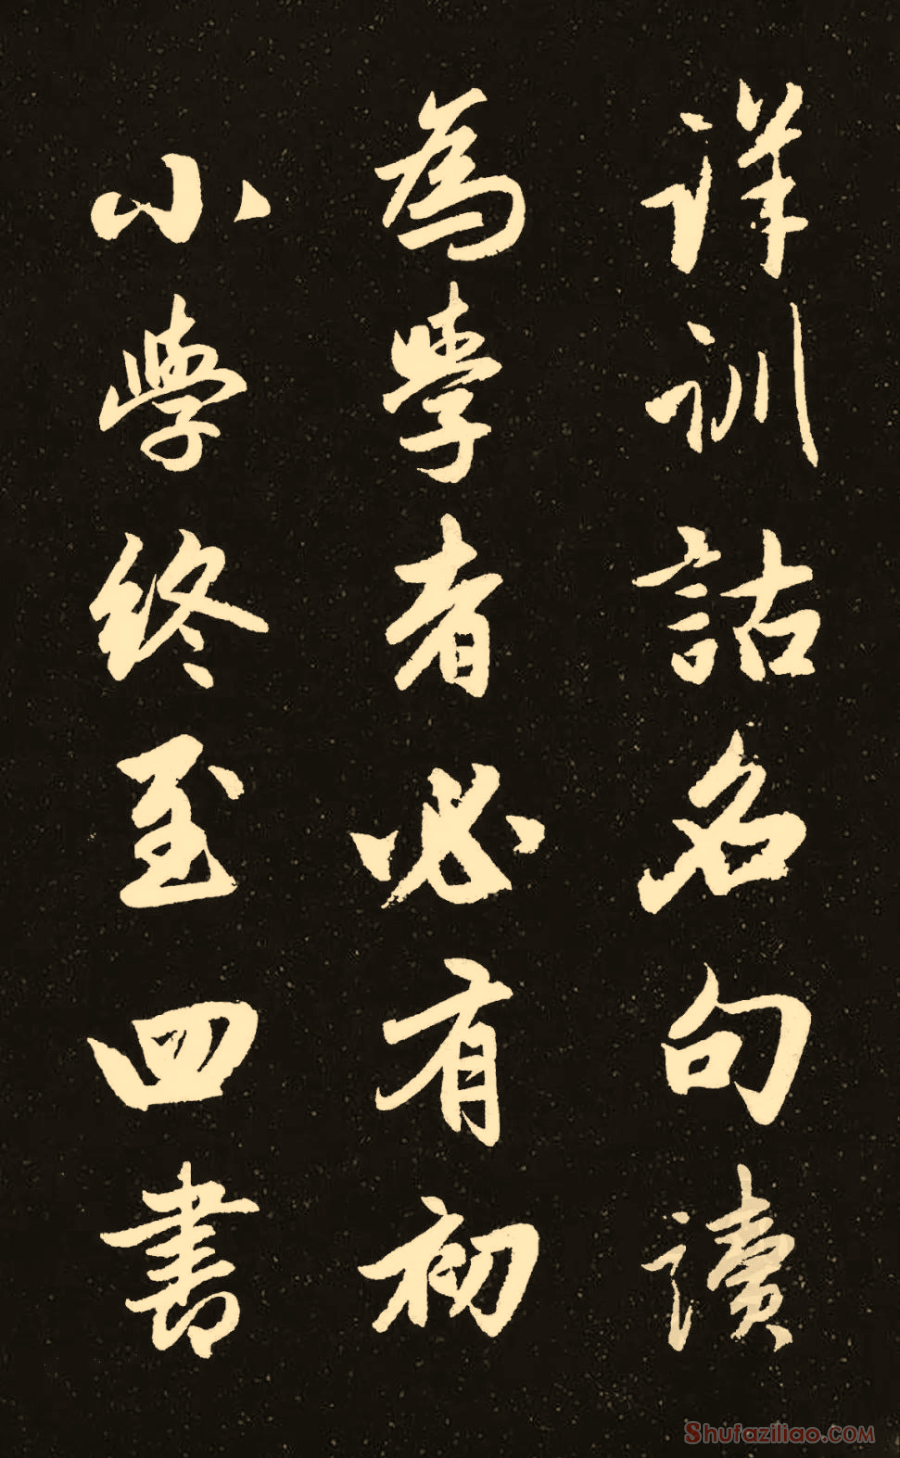 詳訓詁名句讀
為學者必有初
小學終至四書
Shufaziliao.com